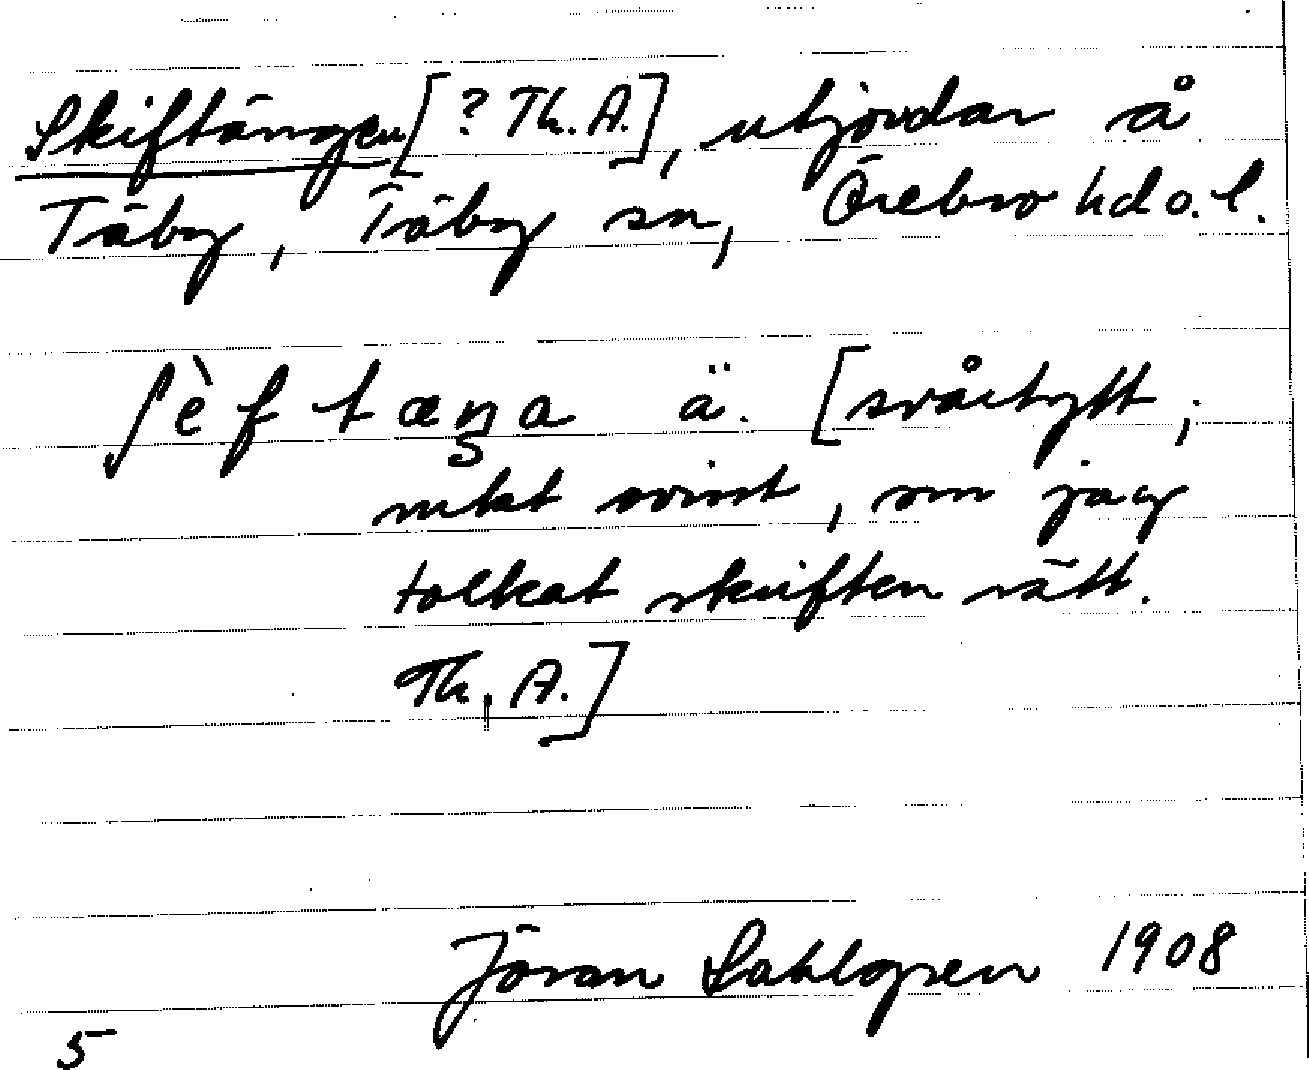 Skiftängen [? Th. A.], utjordar å
Täby, Täby sn, Örebro hd o. l.
ʃèftæŋa ä. [svårtytt;
mkt svint, om jag
tolkat skriften rätt.
Th. A.]
Jöran Sahlgren 1908
5